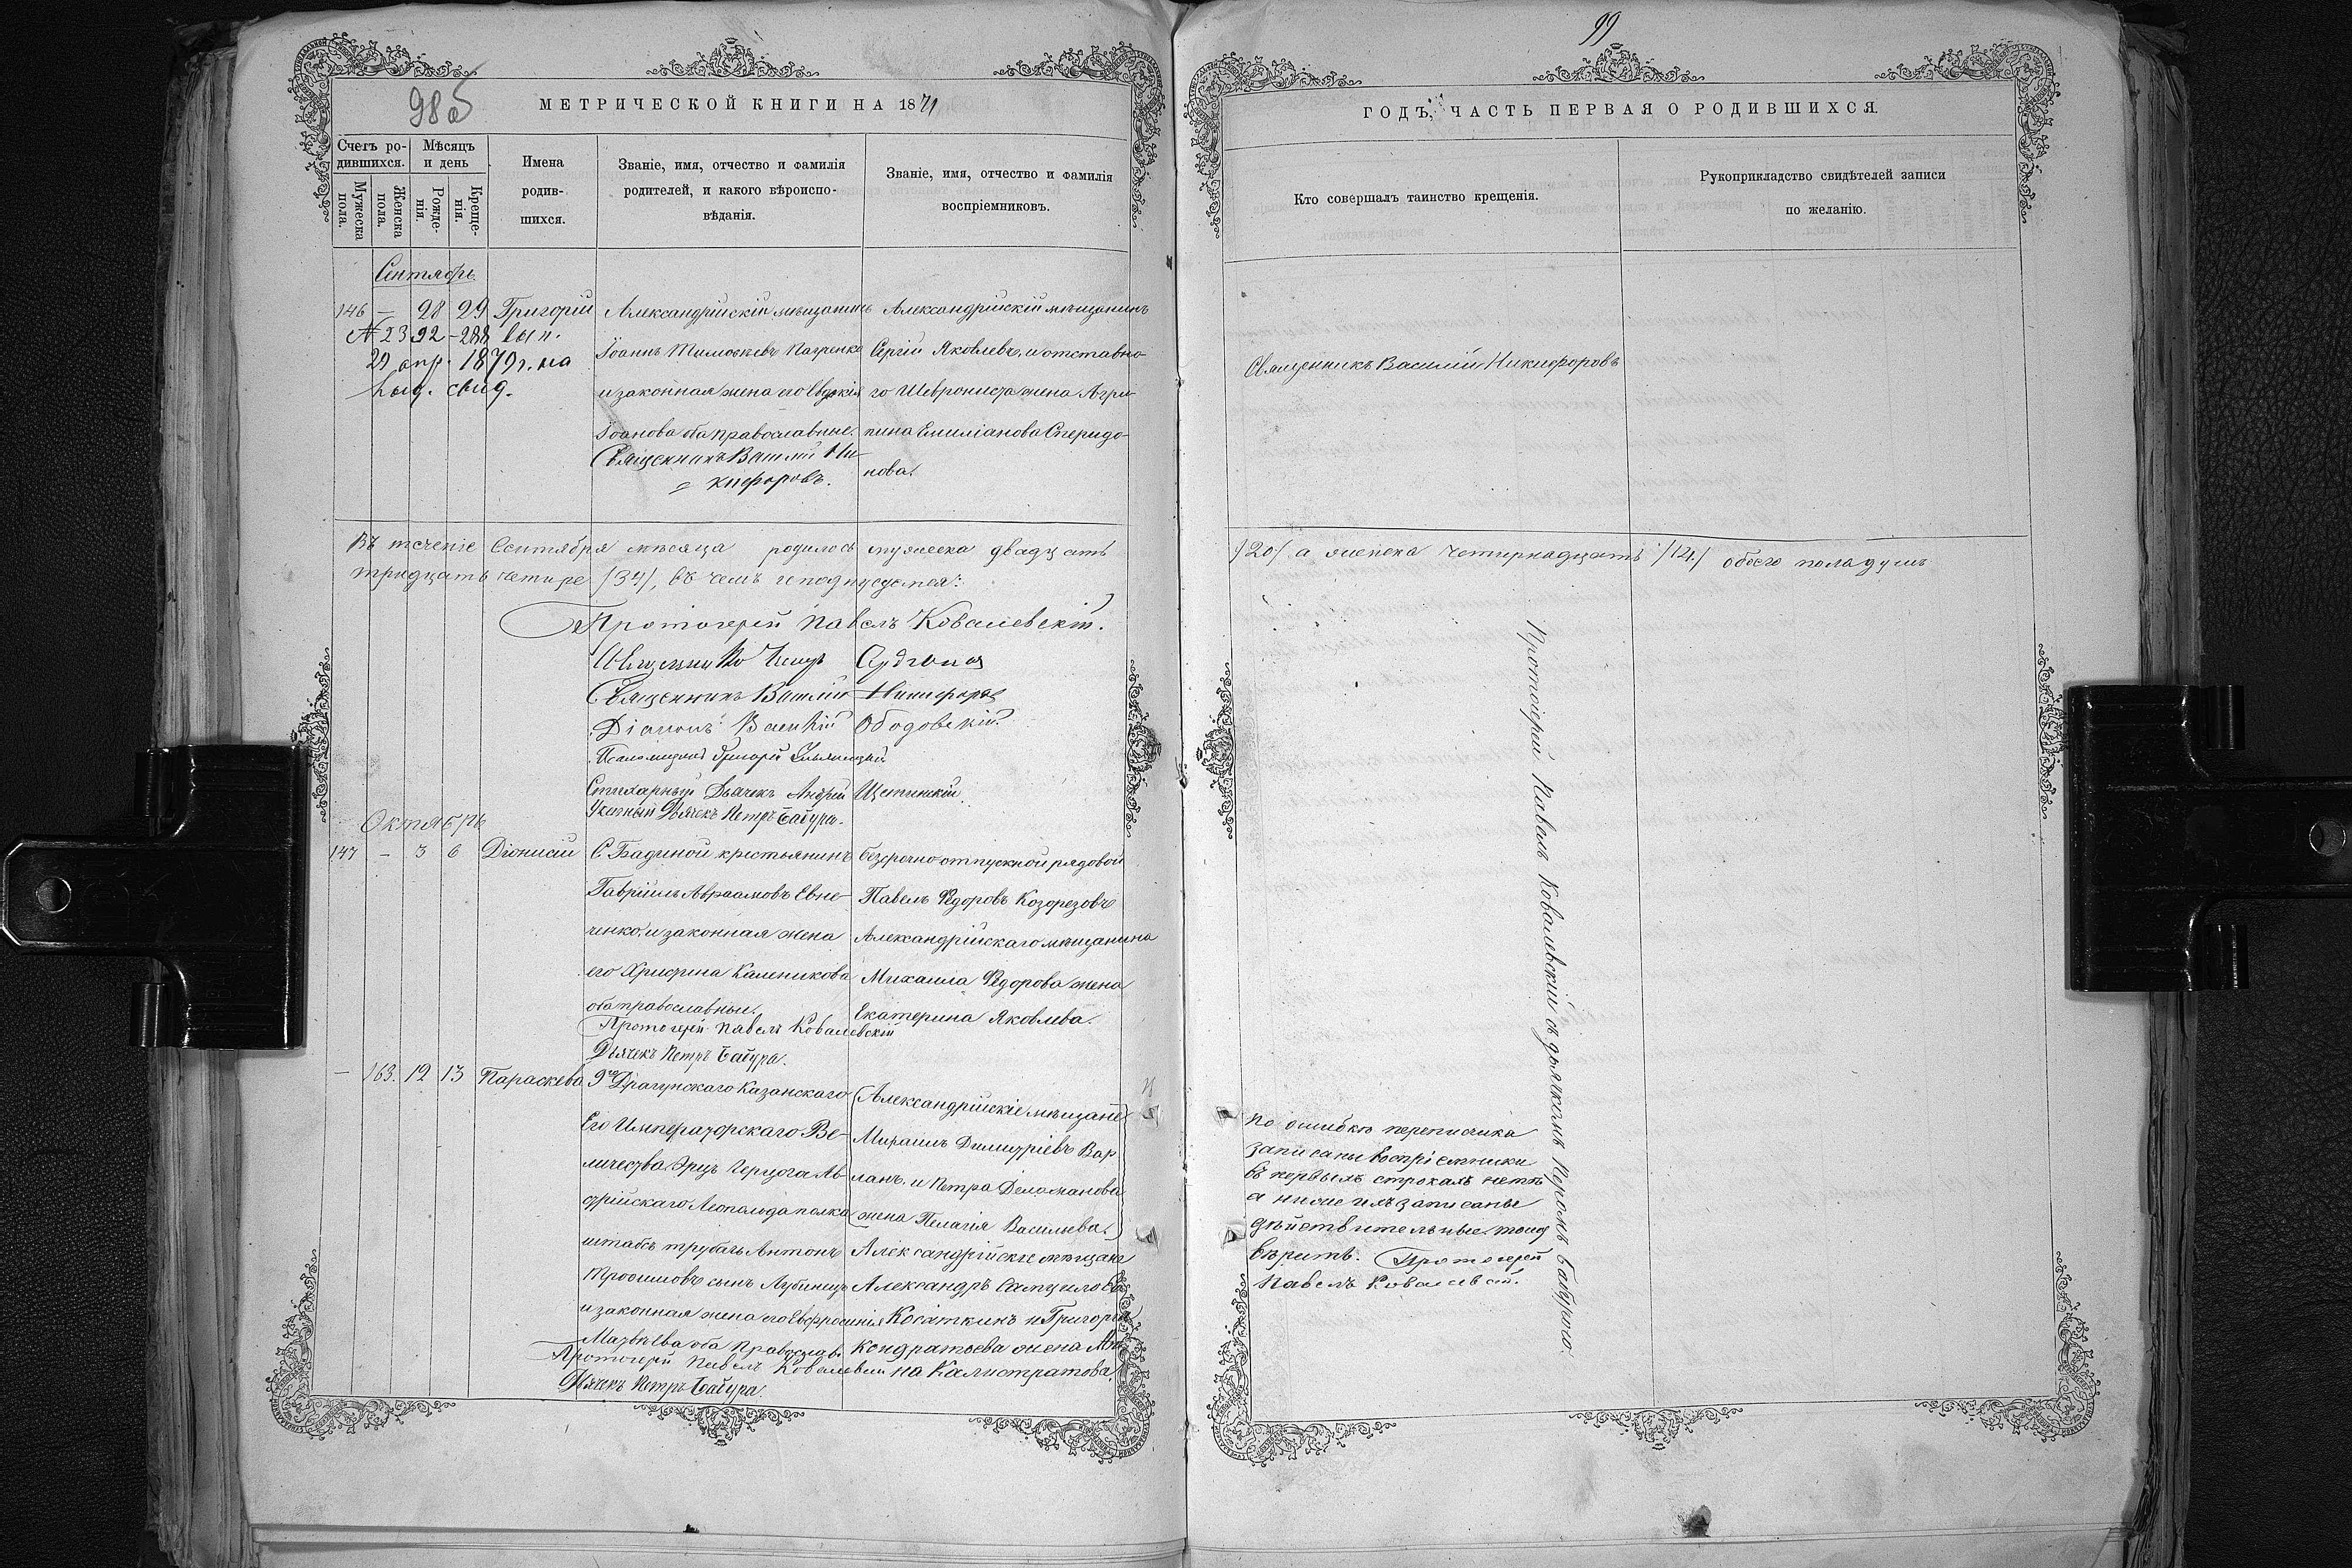 98б
МЕТРИЧЕСКОЙ КНИГИ НА 1871
Счетъ ро-
дившихся.
Мѣсяцъ
и день
Мужеска
пола.
Женска
пола.
Рожде-
нія.
Креще-
нія.
Имена
родив-
шихся.
Званіе, имя, отчество и фамилія
родителей, и какого вѣроиспо-
вѣданія.
Званіе, имя, отчество и фамилія
воспріемниковъ.
Сентябрь
146 — 28 29 Григорій
№ 2392-288 вып.
29 апр. 1879г. на
выд. свид.
Александрійскій мѣщанинъ
Іоаннъ Тимоѳеевъ
и законная жена его Евдокія
Іоанова оба православные.
Священникъ Василій Ни-
кифоровъ.
Александрійскій мѣщанинъ
Сергій Яковлевъ, и отставно-
го Шеврониста жена Агри-
пина Емиліанова Сперидо-
нова.
Въ теченіе Сентября мѣсяца родилось мужеска двадцать
тридцать четыре /34/, въ чемъ и подписуемся:
Протоіерей Павелъ Ковалевскій.
Священникъ
Священникъ Василій Никифоровъ
Діаконъ Василій Ободовскій
Псаломщикъ Григорій
Стихарный Дьячекъ Андрей Щетинскій.
Дьячекъ Петръ Бабура.
Октябрь
147 — 3 6 Діонисій
С. Бадиной крестьянинъ
Гавріилъ Авраамовъ Евне-
ченко, и законная жена
его Христина Каленикова
оба православные.
Протоіерей Павелъ Ковалевскій
Дьячекъ Петръ Бабура.
безсрочно отпускной рядовой
Павелъ Ѳедоровъ Козорезовъ
Александрійскаго мѣщанина
Михаила Ѳедорова жена
Екатерина Яковлева.
— 163. 12 13 Параскева
9го Драгунскаго Казанскаго
Его Императорскаго Ве-
личества Эрцъ Герцога Ав-
стрійскаго Леопольда полка
штабъ трубачь Антонъ
Трофимовъ сынъ
и законная жена его Евфросинія
Матвѣева оба Православ.
Протоіерей Павелъ Ковалевскій
Дьячекъ Петръ Бабура.
(Александрійскіе мѣщане
Михаилъ Димитріевъ Вар
ланъ, и Петра
жена Пелагія Васильева.)
Александрійскіе мѣщане
Александръ
Косаткинъ и Григорія
Кондратьева жена Ан-
на Калистратова.
99
ГОДЪ, ЧАСТЬ ПЕРВАЯ О РОДИВШИХСЯ.
Кто совершалъ таинство крещенія.
Рукоприкладство свидѣтелей записи
по желанію.
Священникъ Василій Никифоровъ
/20/ а женска четырнадцать /14/ обоего пола душъ
Протоіерей Павелъ Ковалевскій съ дьячкомъ Петромъ Бабурою.
По ошибкѣ переписчика
записаны воспріемники
въ первыхъ строкахъ
а ниже ихъ записаны
дѣйствительные.
вѣрить. Протоіерей
Павелъ Ковалевскій.